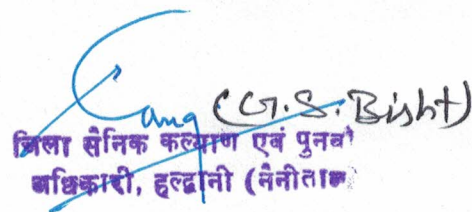 (G.S. Bisht)
जिला सैनिक कल्याण एवं पुनर्वा
अधिकारी, हल्द्वानी (नैनीताल